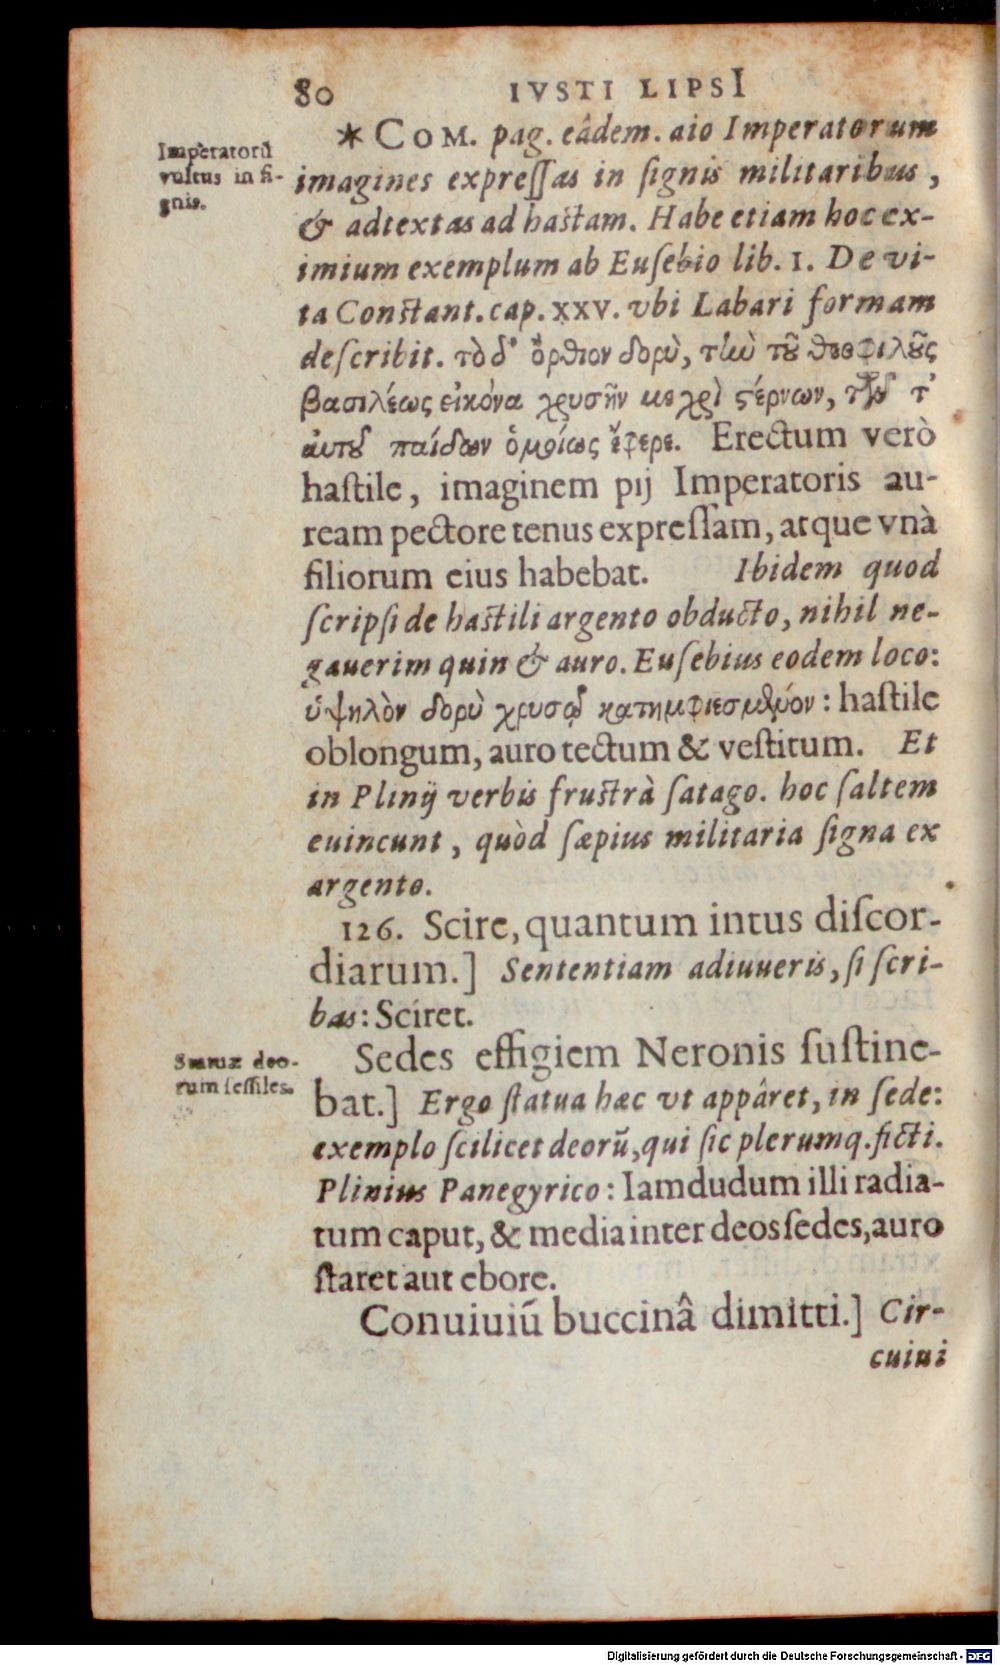 80 IVSTI LIPSI
* COM. pag. eâdem. aio Imperatorum
Imperatorũ
vultus in si-
gnis.
imagines expreſſas in ſignis militaribus,
& adtextas ad haſtam. Habe etiam hoc ex-
imium exemplum ab Euſebio lib. 1. De vi-
ta Conſtant. cap. XXV. vbi Labari formam
deſcribit. τὸ δ' ὄρθιον δορὺ, τὴν τοῦ θεοφιλοῦς
βασιλέως εἰκόνα χρυσῆν μέχρι στέρνων, τῶν τ'
αὐτοῦ παίδων ὁμοίως ἔφερε. Erectum verò
haſtile, imaginem pij Imperatoris au-
ream pectore tenus expreſſam, atque vnà
filiorum eius habebat. Ibidem quod
ſcripſi de haſtili argento obducto, nihil ne-
gauerim quin & auro. Euſebius eodem loco:
ὑψηλὸν δορὺ χρυσῷ κατημφιεσμένον: haſtile
oblongum, auro tectum & veſtitum. Et
in Plinij verbis fruſtrà ſatago. hoc ſaltem
euincunt, quòd ſæpius militaria ſigna ex
argento.
126. Scire, quantum intus diſcor-
diarum.] Sententiam adiuueris, ſi ſcri-
bas: Sciret.
Statuæ deo-
rum ſeſſiles.
Sedes effigiem Neronis ſuſtine-
bat.] Ergo ſtatua hæc vt appâret, in ſede:
exemplo ſcilicet deorũ, qui ſic plerumq. ficti.
Plinius Panegyrico: Iamdudum illi radia-
tum caput, & media inter deos ſedes, auro
ſtaret aut ebore.
Conuiuiũ buccinâ dimitti.] Cir-
cuiui
Digitalisierung gefördert durch die Deutsche Forschungsgemeinschaft - DFG